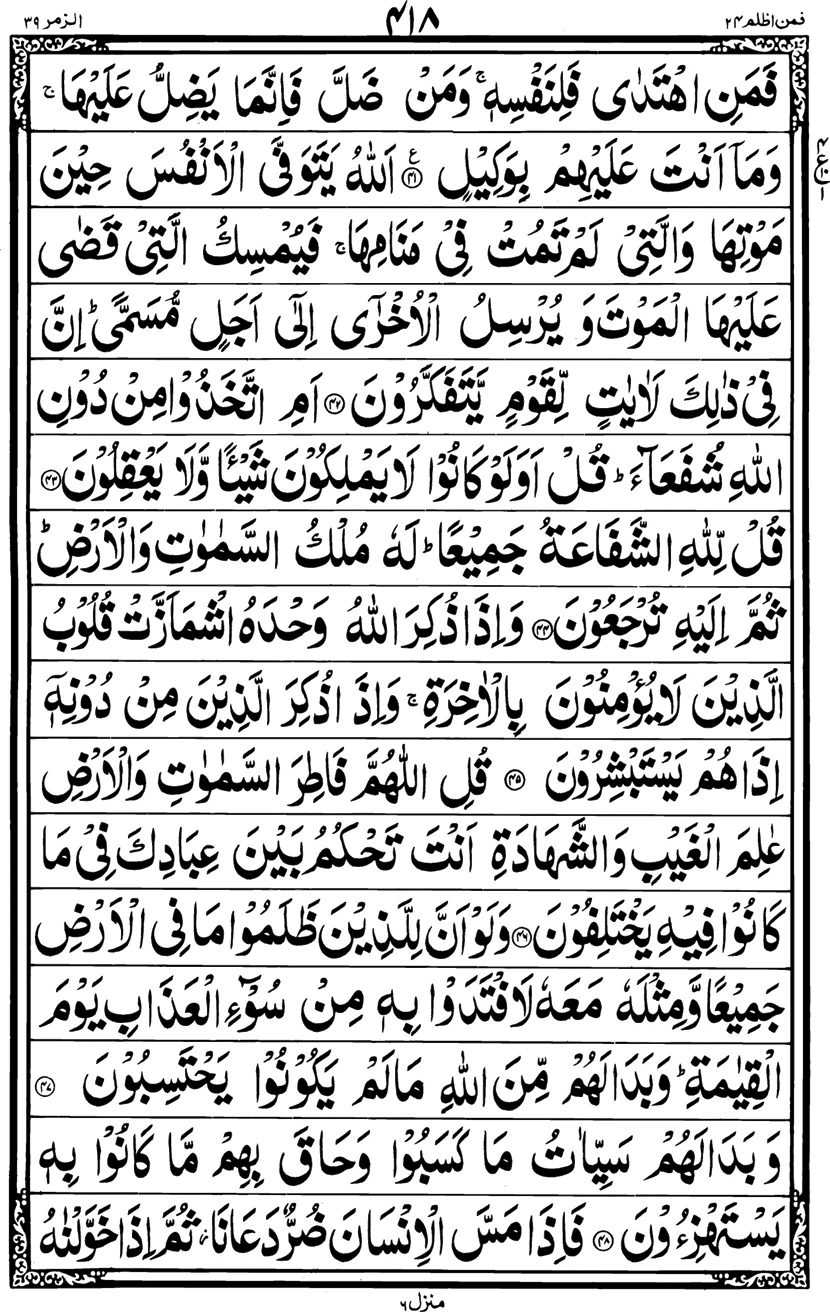 فمن اظلم ۲۴ ۴۱۸ الزمر ۳۹
فَمَنِ اهْتَدٰى فَلِنَفْسِهٖ ۚ وَمَنْ ضَلَّ فَاِنَّمَا يَضِلُّ عَلَيْهَا ۚ
وَمَاۤ اَنْتَ عَلَيْهِمْ بِوَكِيْلٍ ࣖ ﴿۴۱﴾ اَللّٰهُ يَتَوَفَّى الْاَنْفُسَ حِيْنَ
مَوْتِهَا وَالَّتِىْ لَمْ تَمُتْ فِىْ مَنَامِهَا ۚ فَيُمْسِكُ الَّتِىْ قَضٰى
عَلَيْهَا الْمَوْتَ وَ يُرْسِلُ الْاُخْرٰٓى اِلٰٓى اَجَلٍ مُّسَمًّى ؕ اِنَّ
فِىْ ذٰلِكَ لَاٰيٰتٍ لِّقَوْمٍ يَّتَفَكَّرُوْنَ ﴿۴۲﴾ اَمِ اتَّخَذُوْا مِنْ دُوْنِ
اللّٰهِ شُفَعَآءَ ؕ قُلْ اَوَلَوْ كَانُوْا لَا يَمْلِكُوْنَ شَيْـًٔا وَّلَا يَعْقِلُوْنَ ﴿۴۳﴾
قُلْ لِّلّٰهِ الشَّفَاعَةُ جَمِيْعًا ؕ لَهٗ مُلْكُ السَّمٰوٰتِ وَالْاَرْضِ ؕ
ثُمَّ اِلَيْهِ تُرْجَعُوْنَ ﴿۴۴﴾ وَاِذَا ذُكِرَ اللّٰهُ وَحْدَهُ اشْمَاَزَّتْ قُلُوْبُ
الَّذِيْنَ لَا يُؤْمِنُوْنَ بِالْاٰخِرَةِ ۚ وَاِذَا ذُكِرَ الَّذِيْنَ مِنْ دُوْنِهٖۤ
اِذَا هُمْ يَسْتَبْشِرُوْنَ ﴿۴۵﴾ قُلِ اللّٰهُمَّ فَاطِرَ السَّمٰوٰتِ وَالْاَرْضِ
عٰلِمَ الْغَيْبِ وَالشَّهَادَةِ اَنْتَ تَحْكُمُ بَيْنَ عِبَادِكَ فِىْ مَا
كَانُوْا فِيْهِ يَخْتَلِفُوْنَ ﴿۴۶﴾ وَلَوْ اَنَّ لِلَّذِيْنَ ظَلَمُوْا مَا فِى الْاَرْضِ
جَمِيْعًا وَّمِثْلَهٗ مَعَهٗ لَافْتَدَوْا بِهٖ مِنْ سُوْٓءِ الْعَذَابِ يَوْمَ
الْقِيٰمَةِ ؕ وَبَدَا لَهُمْ مِّنَ اللّٰهِ مَا لَمْ يَكُوْنُوْا يَحْتَسِبُوْنَ ﴿۴۷﴾
وَ بَدَا لَهُمْ سَيِّاٰتُ مَا كَسَبُوْا وَحَاقَ بِهِمْ مَّا كَانُوْا بِهٖ
يَسْتَهْزِءُوْنَ ﴿۴۸﴾ فَاِذَا مَسَّ الْاِنْسَانَ ضُرٌّ دَعَانَا ؗ ثُمَّ اِذَا خَوَّلْنٰهُ
منزل ۶